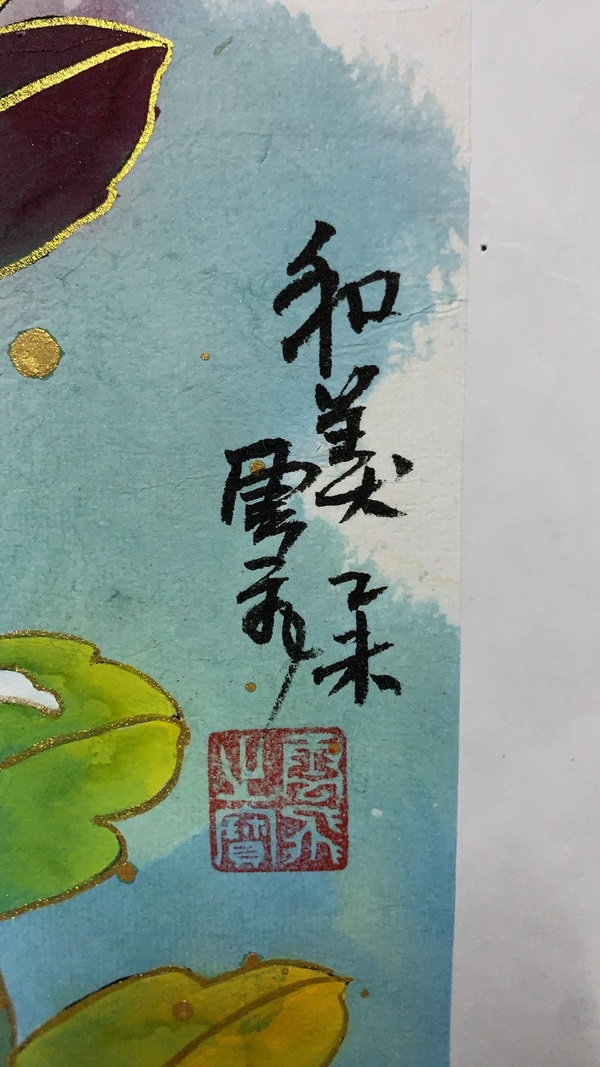 和美 乙未
雲飛
雲飛
之寶